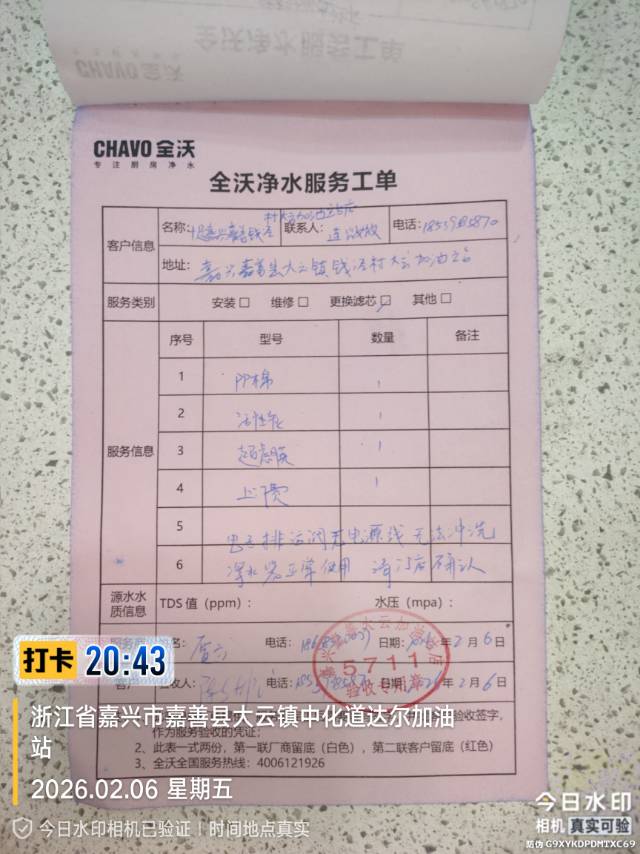 CHAVO 全沃
全沃净水服务工单
CHAVO 全沃
专注厨房净水
全沃净水服务工单
客户信息
名称:
联系人:
电话:
地址: 嘉兴嘉善县大云镇钱 村大云加油站
服务类别 安装□ 维修□ 更换滤芯☑ 其他□
服务信息
序号 型号 数量 备注
1 PP棉 1
2 活性炭 1
3 超滤膜 1
4 上门费 1
5 排污阀无电源线无法冲洗
6 净水器正常使用 请门店确认
源水水质信息 TDS 值(ppm): 水压(mpa):
名: 电话: 日期: 2026年2月6日
客户 验收人: 电话: 日期: 2026年2月6日
大云加油
5711
验收专用章
验收签字,
作为服务验收的凭证;
2、此表一式两份,第一联厂商留底(白色),第二联客户留底(红色)
3、全沃全国服务热线:4006121926
打卡 20:43
浙江省嘉兴市嘉善县大云镇中化道达尔加油
站
2026.02.06 星期五
今日水印相机已验证 | 时间地点真实
今日水印
相机 真实可验
防伪 G9XYKDPDMTXC69